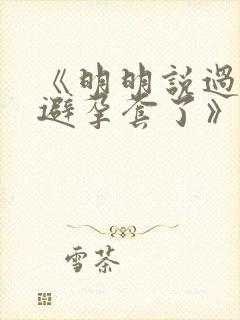 《明明說過
避孕套了》
雪茶